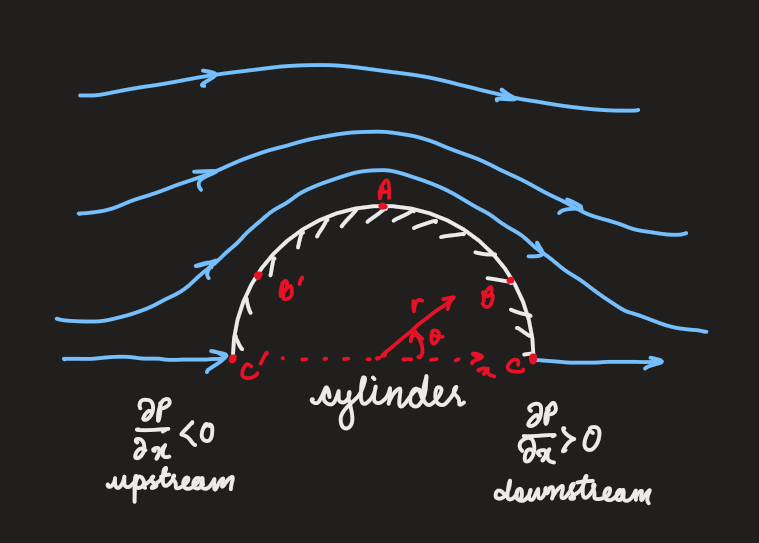 A
B'
B
r
θ
C'
x
C
cylinder
∂P/∂x < 0
upstream
∂P/∂x > 0
downstream